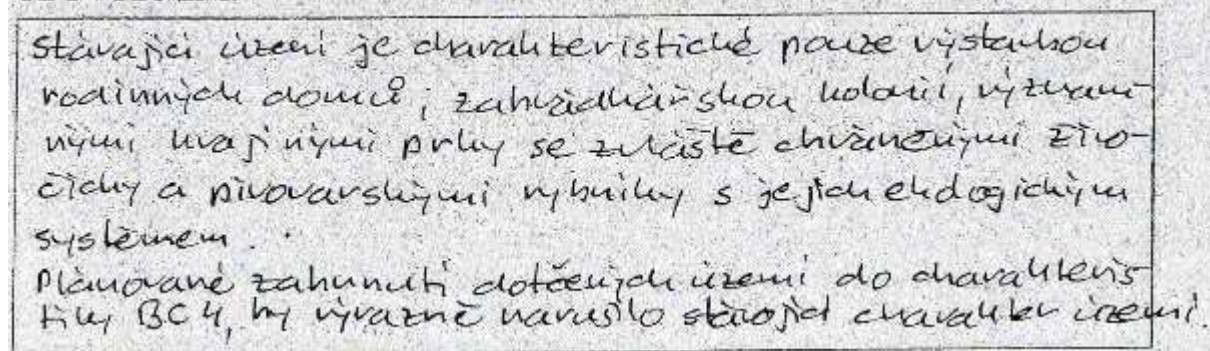 stávající území je charakteristické pouze výstavbou
rodinných domů, zahrádkářskou kolonií, význam-
nými krajinými prvky se zvláště chráněnými živo-
čichy a pivovarskými rybníky s jejich ekologickým
systémem.
Plánované zahrnutí dotčených území do charakteris-
tiky BC4, by výrazně narušilo stávající charakter území.